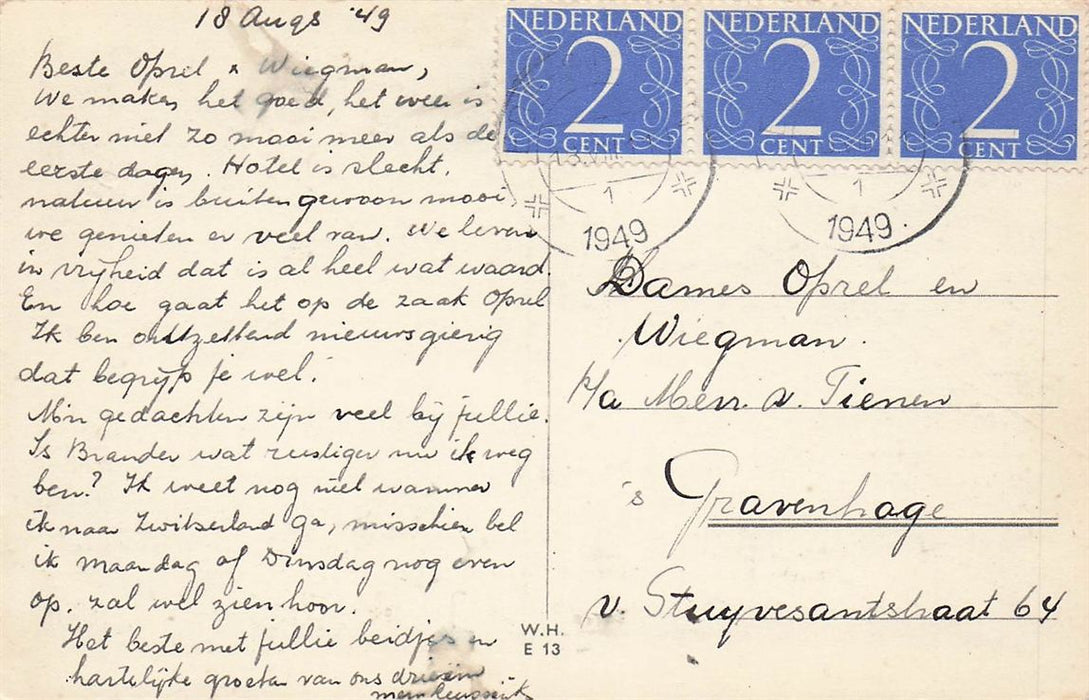 18 Augs '49
Beste Oprel & Wiegman,
We maken het goed, het weer is
echter niet zo mooi meer als de
eerste dagen. Hotel is slecht,
natuur is buitengewoon mooi
we genieten er veel van. We leven
in vrijheid dat is al heel wat waard.
En hoe gaat het op de zaak Oprel
Ik ben ontzettend nieuwsgierig
dat begrijp je wel.
Mijn gedachten zijn veel bij jullie.
Is Brander wat rustiger nu ik weg
ben? Ik weet nog niet wanneer
ik naar Zwitserland ga, misschien bel
ik maandag of Dinsdag nog even
op. zal wel zien hoor.
Het beste met jullie beidjes en
hartelijke groeten van ons drieën
NEDERLAND
2
CENT
NEDERLAND
2
CENT
NEDERLAND
2
CENT
1
1949
1
1949
Dames Oprel en
Wiegman.
P/a Mevr. v. Tienen
's Gravenhage
v. Stuyvesantstraat 64
W.H.
E 13